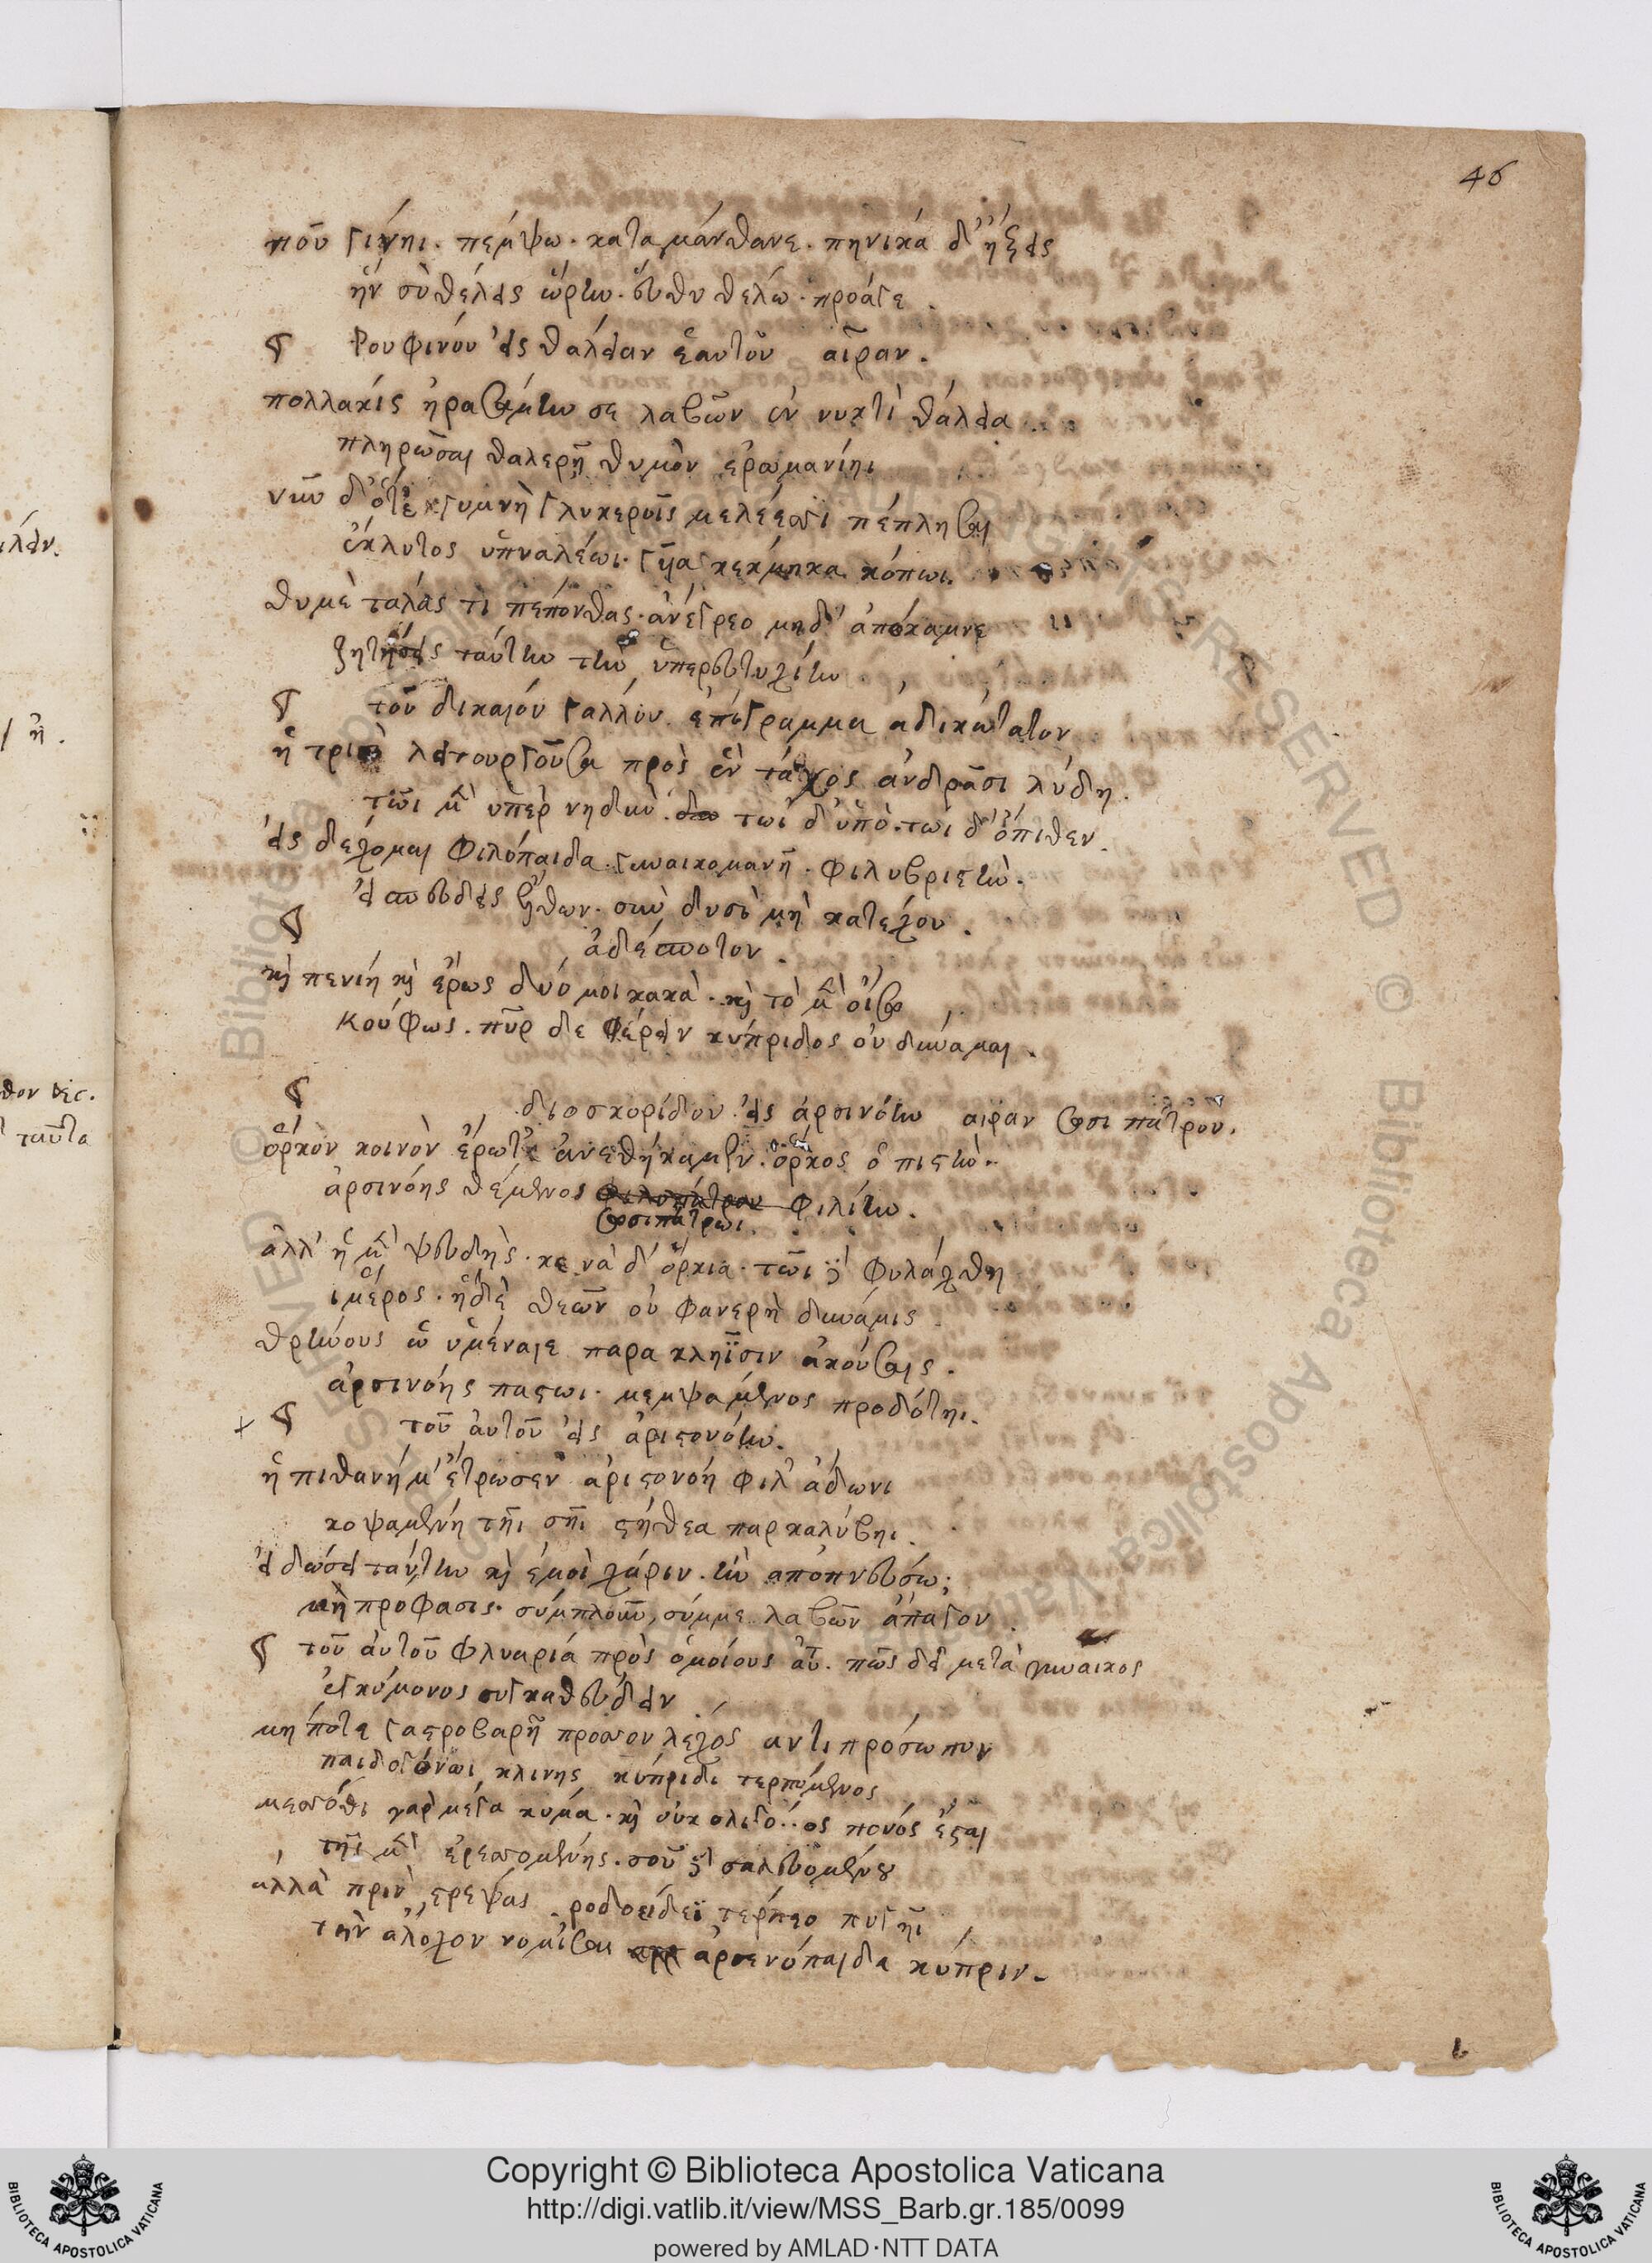 46
ποῦ γίνηι. πέμψω. καταμάνθανε. πηνικά δ' ἥξεις
ἣν σὺ θέλεις ὥρην. εὐθὺ θέλω. πρόαγε.
Ρουφίνου εἰς θάλειαν ἑαυτοῦ αἵραν.
πολλακις ἠρασάμην σε λαβὼν ἐν νυκτὶ θάλεια
πληρῶσαι θαλερῆ θυμὸν ἐρωμανίηι
νῦν δ' ὅτε γυμνὴ γλυκεροῖς μελέεσσι πέπλησαι
ἔκλυτος ὑπναλέωι. γυῖα κέκμηκα κόπωι.
θυμὲ τάλας τί πέπονθας. ἀνέγρεο μηδ' ἀπόκαμνε
ζητήσεις ταύτην τὴν ὑπερευτυχίην
τοῦ δικαίου γάλλου. ἐπίγραμμα ἀδικώτατον
ἡ τρισὶ λειτουργοῦσα πρὸς ἓν τάχος ἀνδράσι λύδη.
τῶι μὲν ὑπὲρ νηδὺν. τῶι δ' ὑπὸ. τωι δ' ὄπιθεν.
εἰς δέχομαι φιλόπαιδα. γυναικομανῆ. φιλυβριστήν.
εἰ σπεύδεις ἐλθὼν. σὺν δυσὶ μὴ κατέχου.
ἀδέσποτον.
καὶ πενίη καὶ ἔρως δύο μοι κακά. καὶ τὸ μὲν οἴσω
κούφως. πῦρ δε φέρειν κύπριδος οὐ δύναμαι.
διοσκορίδου. εἰς ἀρσινόην αιραν σωσιπάτρου.
ὅρκον κοινὸν ἔρωτι ἀνεθήκαμεν. ὅρκος ὁ πιστὴν
ἀρσινόης θέμενος φιλοπάτρου φιλίην.
σωσιπάτρωι.
ἀλλ' ἡ μὲν ψευδὴς. κενὰ δ' ὅρκια. τῶι δ' ἐφυλάχθη
ἵμερος. ἡ δὲ θεῶν οὐ φανερὴ δύναμις.
θρήνους ὦ ὑμέναιε παρα κληῗσιν ἀκούσαις.
ἀρσινόης παστωι. μεμψάμενος προδότηι.
τοῦ αὐτοῦ εἰς ἀριστονόην.
ἡ πιθανή μ' ἔτρωσεν ἀριστονοη φιλ' ἄδωνι
κοψαμένη τῆι σῆι στήθεα παρ καλύβηι.
εἰ δώσει ταύτην καὶ ἐμοὶ χάριν. ἢν ἀποπνεύσω;
μὴ πρόφασις. σύμπλουν, σύμμε λαβὼν ἀπάγου.
τοῦ αὐτοῦ φλυαρία πρὸς ὁμοίους αὐτ. πῶς δεῖ μετὰ γυναικος
ἐγκύμονος συγκαθεύδειν
μήποτε γαστροβαρῆ πρὸς σον λέχος ἀντιπρόσωπον
παιδογόνωι κλινης κύπριδι τερπόμενος
μεσσόθι γαρ μέγα κῦμα. καὶ οὐκ ολιγο..ος πόνος ἔσται
τῆς μὲν ἐρεσσομένης. σοῦ δὲ σαλευομένου
ἀλλὰ πριν στρέψας ῥοδοειδέϊ τέρπεο πυγῆι
τὴν ἄλοχον νομίσαι ἀρσενόπαιδα κύπριν.